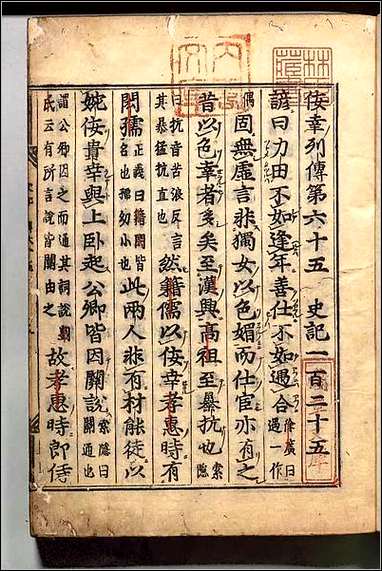 佞幸列傳第六十五　史記一百二十五
諺曰力田不如逢年善仕不如遇合徐廣曰遇一作
偶固無虛言非獨女以色媚而仕宦亦有之
昔以色幸者多矣至漢興高祖至暴抗也索隱
曰抗音苦浪反言其暴猛抗直也然籍儒以佞幸孝惠時有
閎孺正義曰籍閎皆名也孺幼小也此兩人非有材能徒以
婉佞貴幸與上卧起公卿皆因關說索隱曰關通也
謂公卿因之而通其詞說劉氏云有所言說皆關由之故孝惠時郎侍